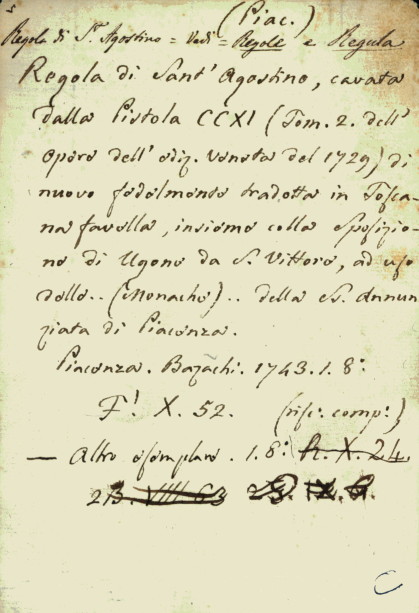 (Piac.)
Regola di S. Agostino = Vedi = Regole e Regula
Regola di Sant' Agostino, cavata
dalla Pistola CCXI (Tom. 2. dell'
opere dell' ediz. veneta del 1729) di
nuovo fedelmente tradotta in Tosca-
na favella, insieme colla sposizio-
ne di Ugone da S. Vittore, ad uso
delle.. (Monache).. della SS. Annun
ziata di Piacenza.
Piacenza. Bazachi. 1743. 1. 8:
F! X. 52. (rift: comp:)
— Altro esemplare. 1. 8: R. X. 24.
23. VIIII. 63